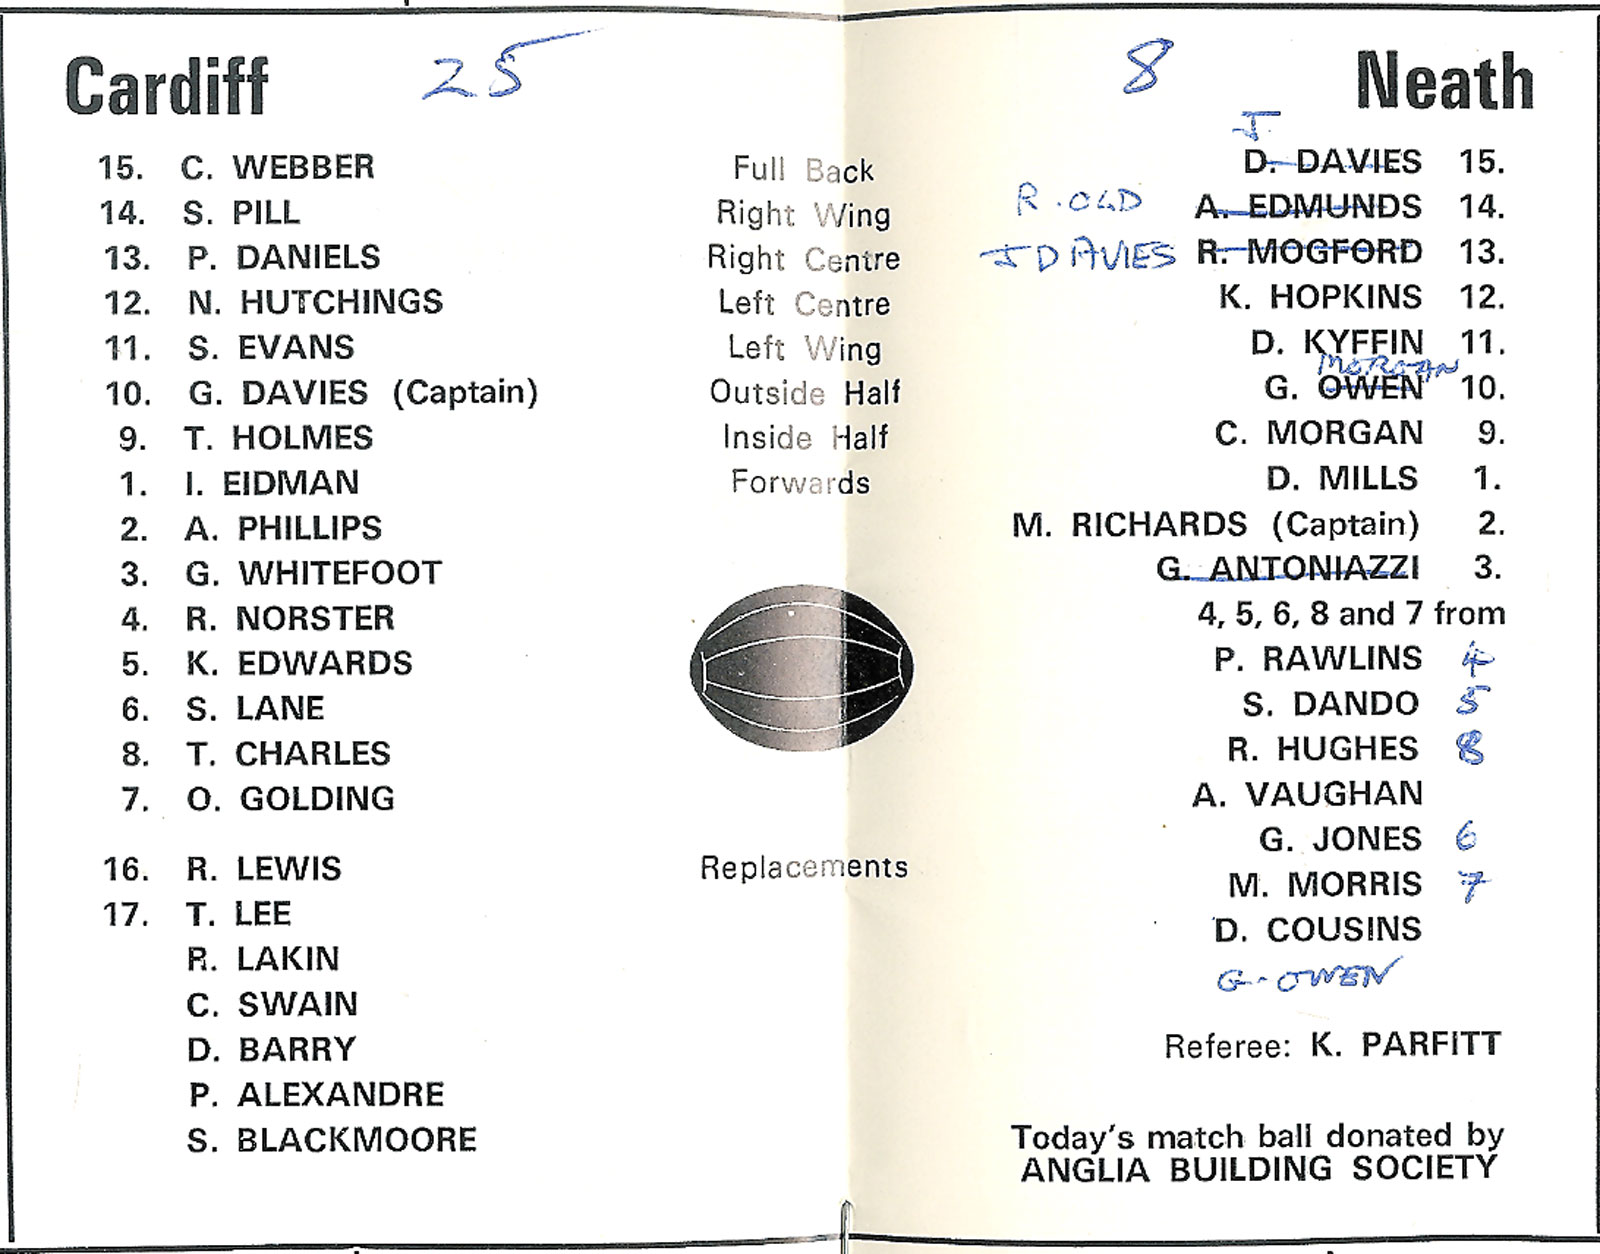 Cardiff 25 8 Neath
J.
15. C. WEBBER Full Back D. DAVIES 15.
14. S. PILL Right Wing R. OLD A. EDMUNDS 14.
13. P. DANIELS Right Centre J DAVIES R. MOGFORD 13.
12. N. HUTCHINGS Left Centre K. HOPKINS 12.
11. S. EVANS Left Wing D. KYFFIN 11.
MORGAN
10. G. DAVIES (Captain) Outside Half G. OWEN 10.
9. T. HOLMES Inside Half C. MORGAN 9.
1. I. EIDMAN Forwards D. MILLS 1.
2. A. PHILLIPS M. RICHARDS (Captain) 2.
3. G. WHITEFOOT G. ANTONIAZZI 3.
4. R. NORSTER 4, 5, 6, 8 and 7 from
5. K. EDWARDS P. RAWLINS 4
6. S. LANE S. DANDO 5
8. T. CHARLES R. HUGHES 8
7. O. GOLDING A. VAUGHAN
G. JONES 6
16. R. LEWIS Replacements M. MORRIS 7
17. T. LEE D. COUSINS
R. LAKIN G. OWEN
C. SWAIN
D. BARRY Referee: K. PARFITT
P. ALEXANDRE
S. BLACKMOORE Today's match ball donated by
ANGLIA BUILDING SOCIETY